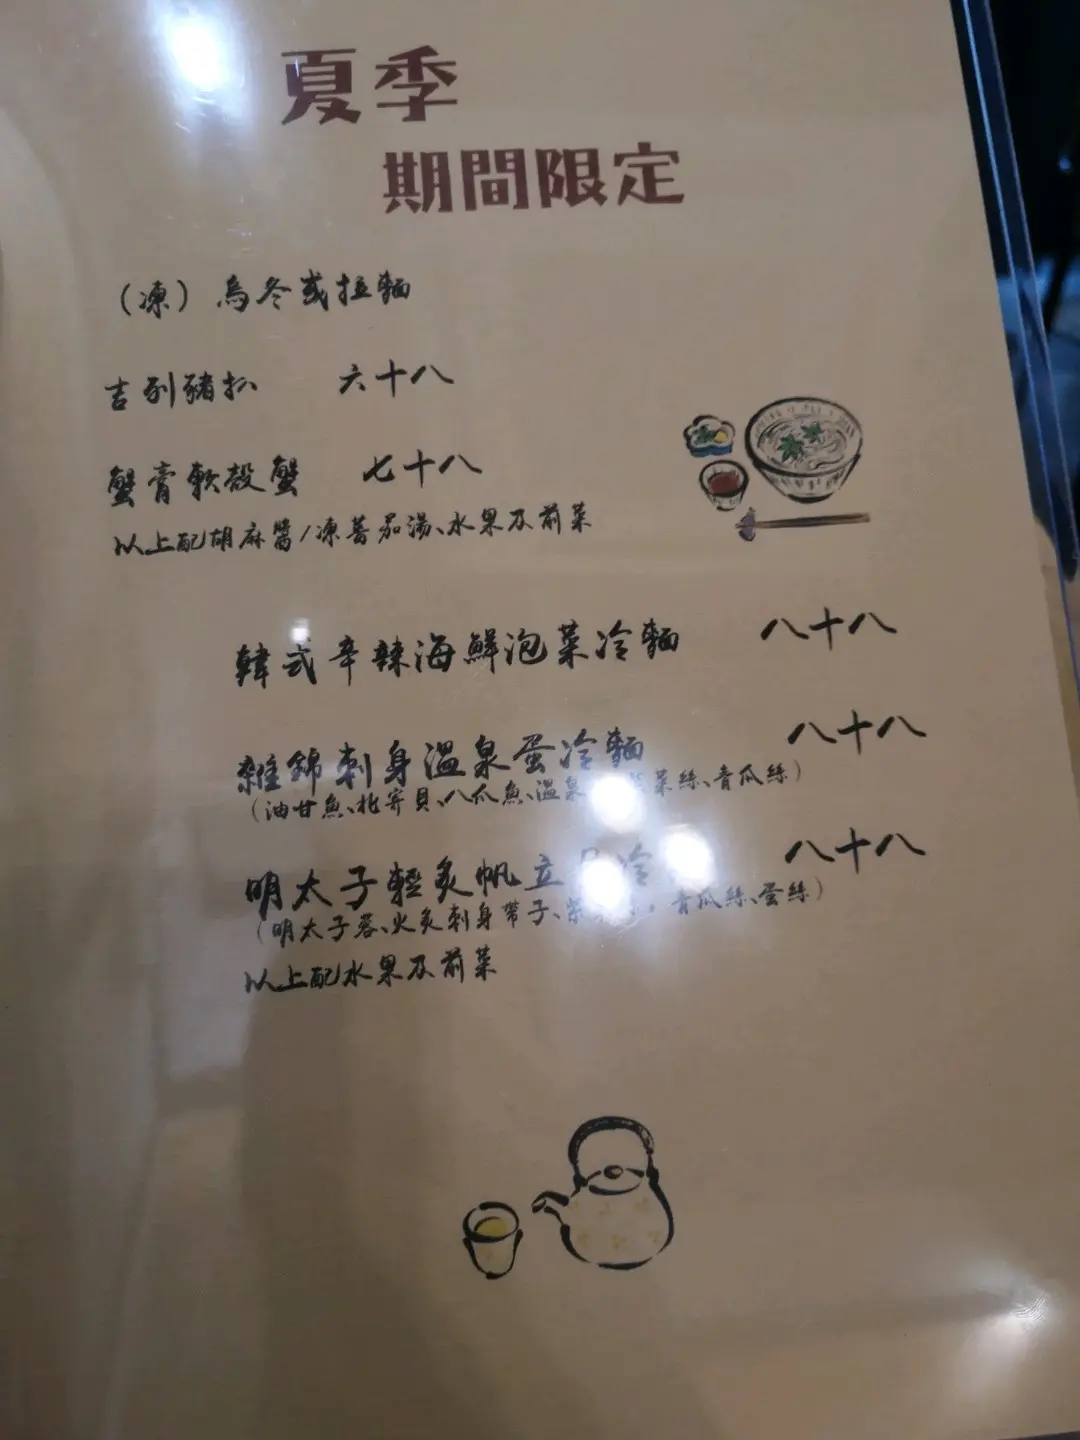 夏季
期間限定
(凍) 烏冬或拉麵
吉列豬扒 六十八
蟹膏軟殼蟹 七十八
以上配胡麻醬/凍蕃茄湯、水果及前菜
韓式辛辣海鮮泡菜冷麵 八十八
雜錦刺身溫泉蛋冷麵 八十八
(油甘魚、北寄貝、八爪魚、溫泉 菜絲、青瓜絲)
明太子輕炙帆立 冷 八十八
(明太子蓉、火炙刺身帶子、 青瓜絲、蛋絲)
以上配水果及前菜